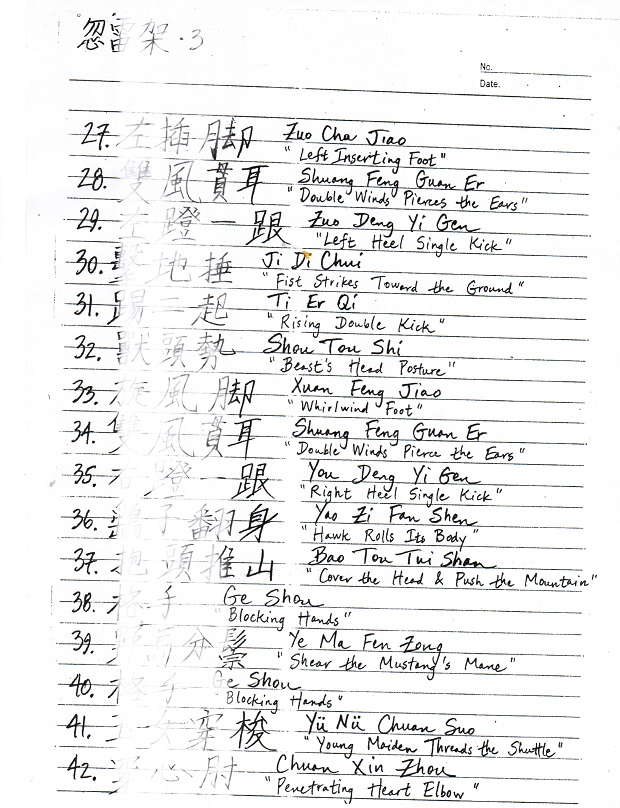 忽雷架·3
No.
Date.
27. 左揷脚 Zuo Cha Jiao
"Left Inserting Foot"
28. 雙風貫耳 Shuang Feng Guan Er
"Double Winds Pierces the Ears"
29. 左蹬一跟 Zuo Deng Yi Gen
"Left Heel Single Kick"
30. 擊地捶 Ji Di Chui
"Fist Strikes Toward the Ground"
31. 踢二起 Ti Er Qi
"Rising Double Kick"
32. 獸頭勢 Shou Tou Shi
"Beast's Head Posture"
33. 旋風脚 Xuan Feng Jiao
"Whirlwind Foot"
34. 雙風貫耳 Shuang Feng Guan Er
"Double Winds Pierce the Ears"
35. 右蹬一跟 You Deng Yi Gen
"Right Heel Single Kick"
36. 鷂子翻身 Yao Zi Fan Shen
"Hawk Rolls Its Body"
37. 抱頭推山 Bao Tou Tui Shan
"Cover the Head & Push the Mountain"
38. 格手 Ge Shou
"Blocking Hands"
39. 野馬分鬃 Ye Ma Fen Zong
"Shear the Mustang's Mane"
40. 格手 Ge Shou
Blocking Hands"
41. 玉女穿梭 Yü Nü Chuan Suo
"Young Maiden Threads the Shuttle"
42. 穿心肘 Chuan Xin Zhou
"Penetrating Heart Elbow"